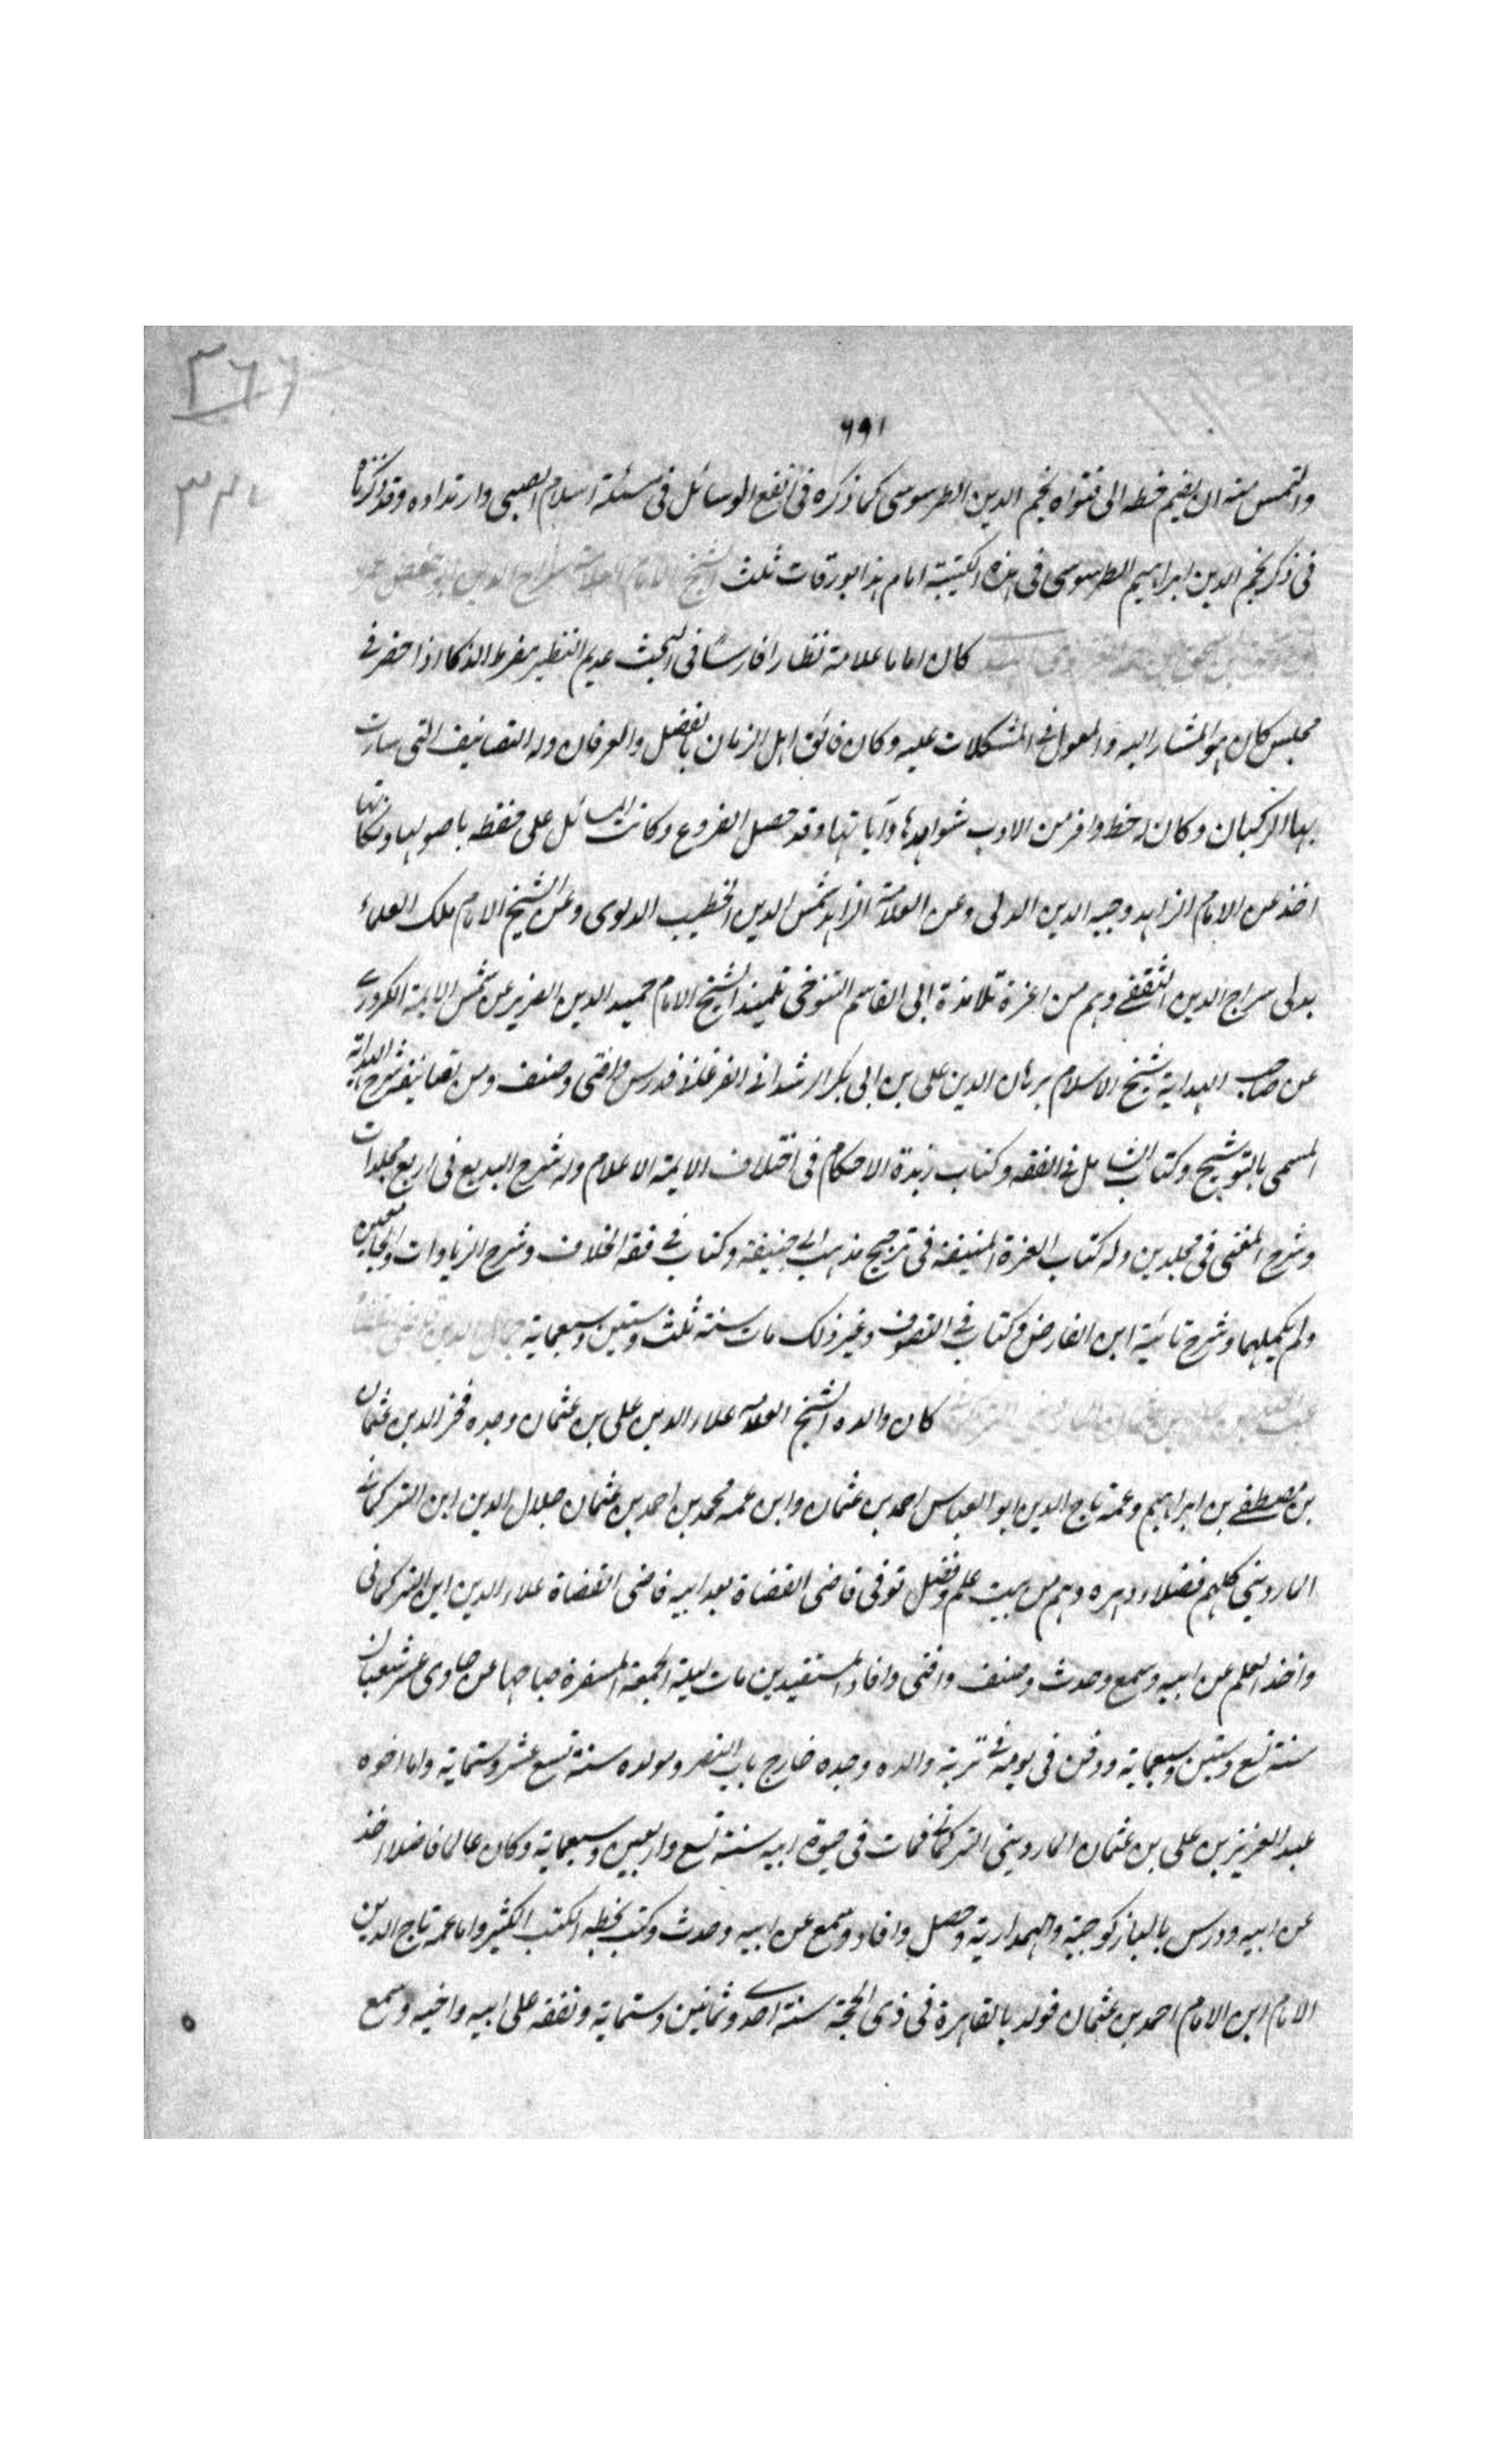 ٣٦٦
٦٩١
والتمس منه ان يضم خطه الى فتواه نجم الدين الطرسوسى كما ذكره فى انفع الوسائل فى مسئلة اسلام الصبى وارتداده وقد ذكرناه
فى ذكر نجم الدين ابراهيم الطرسوسى فى هذه الكتيبة امام هذا بورقات ثلث الشيخ الامام العلامة سراج الدين ابو حفص عمر
كان اماما علامة نظارا فارسا فى البحث عديم النظير مفرط الذكا اذا حضر فى
مجلس كان هو المشار اليه والمعول فى المشكلات عليه وكان فائق اهل الزمان بالفضل والعرفان وله التصانيف التى سارت
بها الركبان وكان له حظ وافر من الادب شواهدها وآياتها وقد حصل الفروع وكانت المسائل على حفظه باصولها ونكاتها
اخذ عن الامام الزاهد وجيه الدين الدلى وعن العلامة الزاهد شمس الدين الخطيب الدلوى وعن الشيخ الامام ملك العلماء
بدلى سراج الدين الثقفى وهم من اعزة تلامذة ابى القاسم التنوخى تلميذ الشيخ الامام حميد الدين الضرير عن شمس الايمة الكردرى
عن صاحب الهداية شيخ الاسلام برهان الدين على بن ابى بكر الرشدانى الفرغانى فدرس وافتى وصنف ومن تصانيفه شرح الهداية
المسمى بالتوشيح وكتاب الشامل فى الفقه وكتاب زبدة الاحكام فى اختلاف الايمة الاعلام وله شرح البديع فى اربع مجلدات
وشرح المغنى فى مجلدين وله كتاب الغرة المنيفة فى ترجيح مذهب ابى حنيفة وكتاب فى فقه الخلاف وشرح الزيادات والجامعين
ولم يكملهما وشرح تائية ابن الفارض وكتاب فى التصوف وغير ذلك مات سنة ثلث وستين وسبعماية جمال الدين
كان والده الشيخ العلامه علاء الدين على بن عثمان وجده فخر الدين عثمان
بن مصطفى بن ابراهيم وعمه تاج الدين ابو العباس احمد بن عثمان وابن عمه محمد بن احمد بن عثمان جلال الدين ابن التركمانى
الماردينى كلهم فضلاء دهره وهم من بيت علم وفضل توفى قاضى القضاة بعد ابيه قاضى القضاة علاء الدين ابن التركمانى
واخذ العلم عن ابيه وسمع وحدث وصنف وافتى وافاد المستفيدين مات ليلة الجمعة المسفرة صباحها عن حادى عشر شعبان
سنة تسع وستين وسبعماية ودفن فى يومه فى تربة والده وجده خارج باب النصر ومولده سنة تسع عشر وستماية واما اخوه
عبد العزيز بن على بن عثمان الماردينى التركمانى فمات فى حيوة ابيه سنة تسع واربعين وسبعماية وكان عالما فاضلا اخذ
عن ابيه ودرس بالبازكوجية والمهمدارية وحصل وافاد وسمع عن ابيه وحدث وكتب بخطه الكتب الكثير واما عمه تاج الدين
الامام ابن الامام احمد بن عثمان فولد بالقاهرة فى ذى الحجة سنة احدى وثمانين وستماية وتفقه على ابيه واخيه وسمع